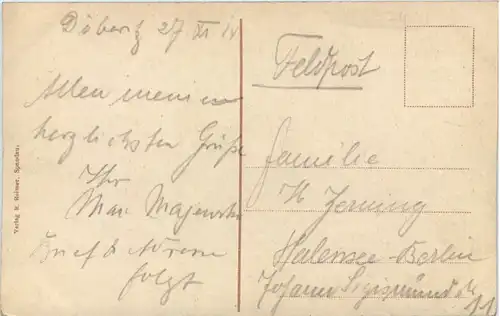 Döberitz 27 XI 14
Allen meinen
herzlichsten Grüße
Ihr
Max Majewski
Brief & Adresse
folgt
Feldpost
Familie
H Jerning
Halensee-Berlin
Johann Sigismund str
11
Verlag R. Kelmer, Spandau.